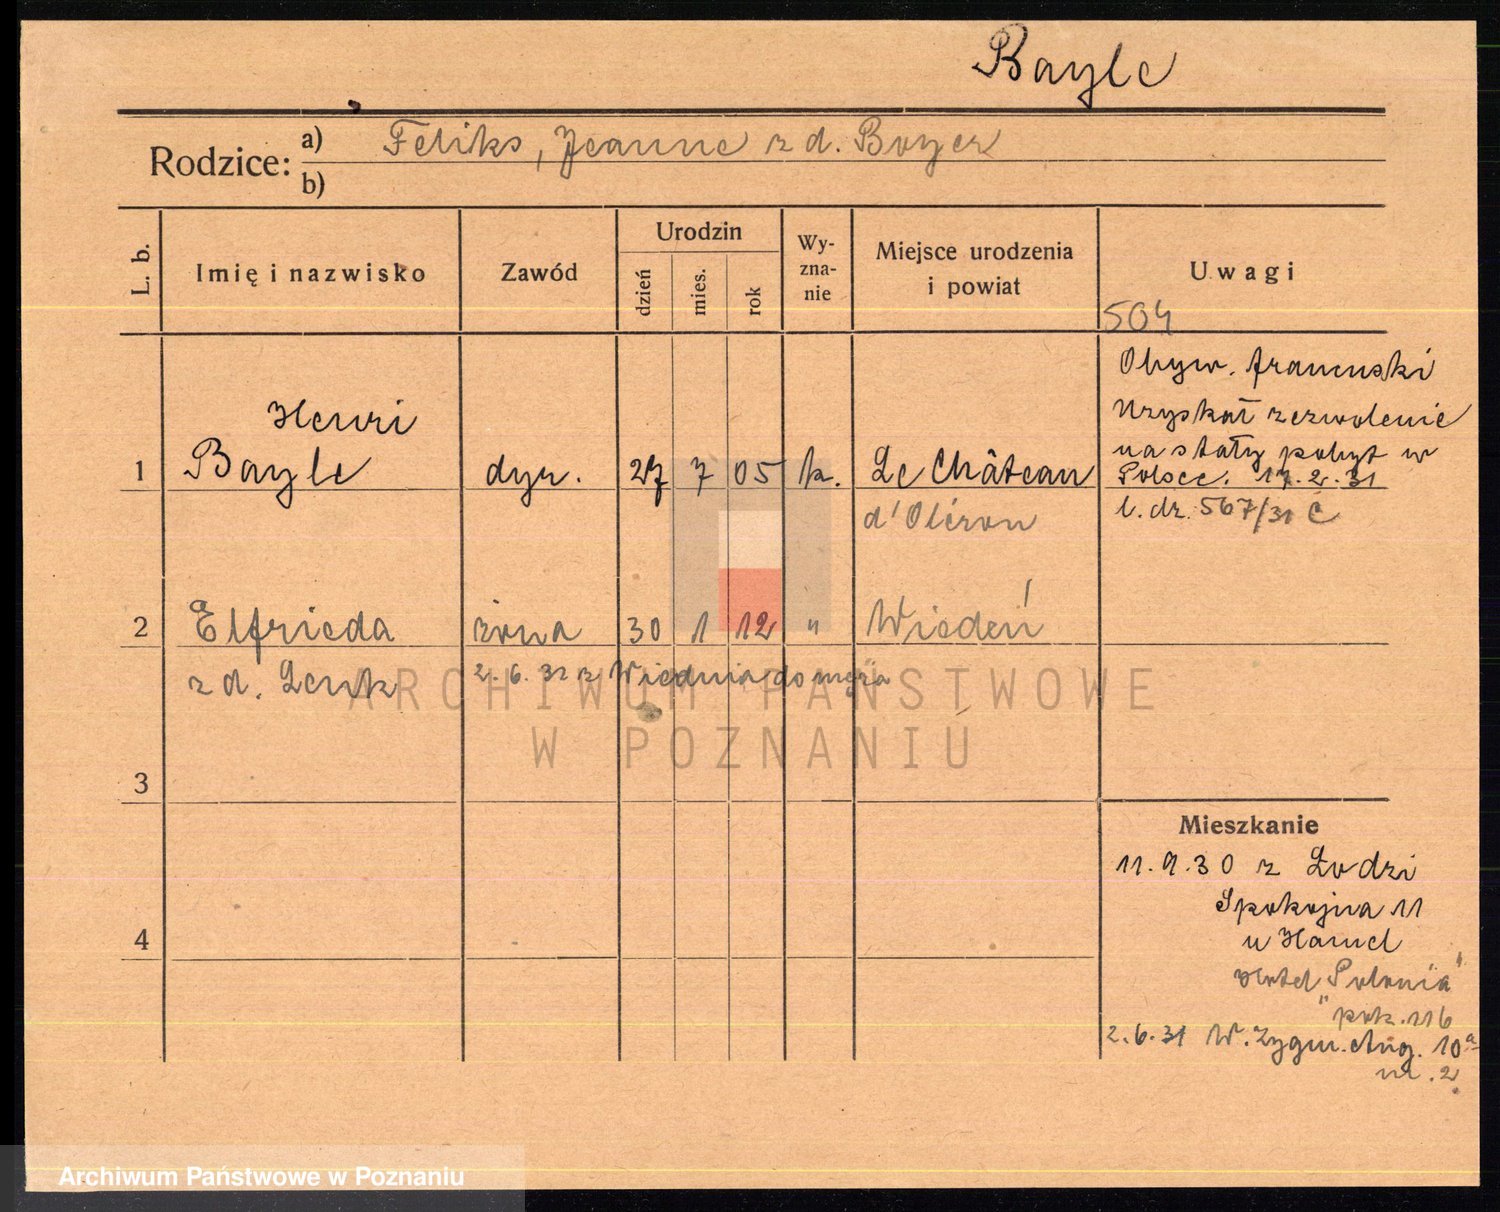 Bayle
Rodzice: a) Feliks, Jeanne z d. Boyer
b)
L. b.
Imię i nazwisko
Zawód
Urodzin
dzień
mies.
rok
Wy-
zna-
nie
Miejsce urodzenia
i powiat
Uwagi
504
Obyw. francuski
Uzyskał zezwolenie
na stały pobyt w
Polsce. 17.2.31
l. dz. 567/31 C
Henri
1 Bayle dyr. 27 7 05 k. Le Château
d'Oléron
2 Elfrieda żona 30 1 12 " Wiedeń
z d. Lenk 2.6.31 z Wiednia do męża
3
4
Mieszkanie
11.9.30 z Łodzi
Spokojna 11
u Hamel
Hotel "Polonia"
pok. 116
2.6.31 W. Zygm. Aug. 10a
m. 2
ARCHIWUM PAŃSTWOWE
W POZNANIU
Archiwum Państwowe w Poznaniu